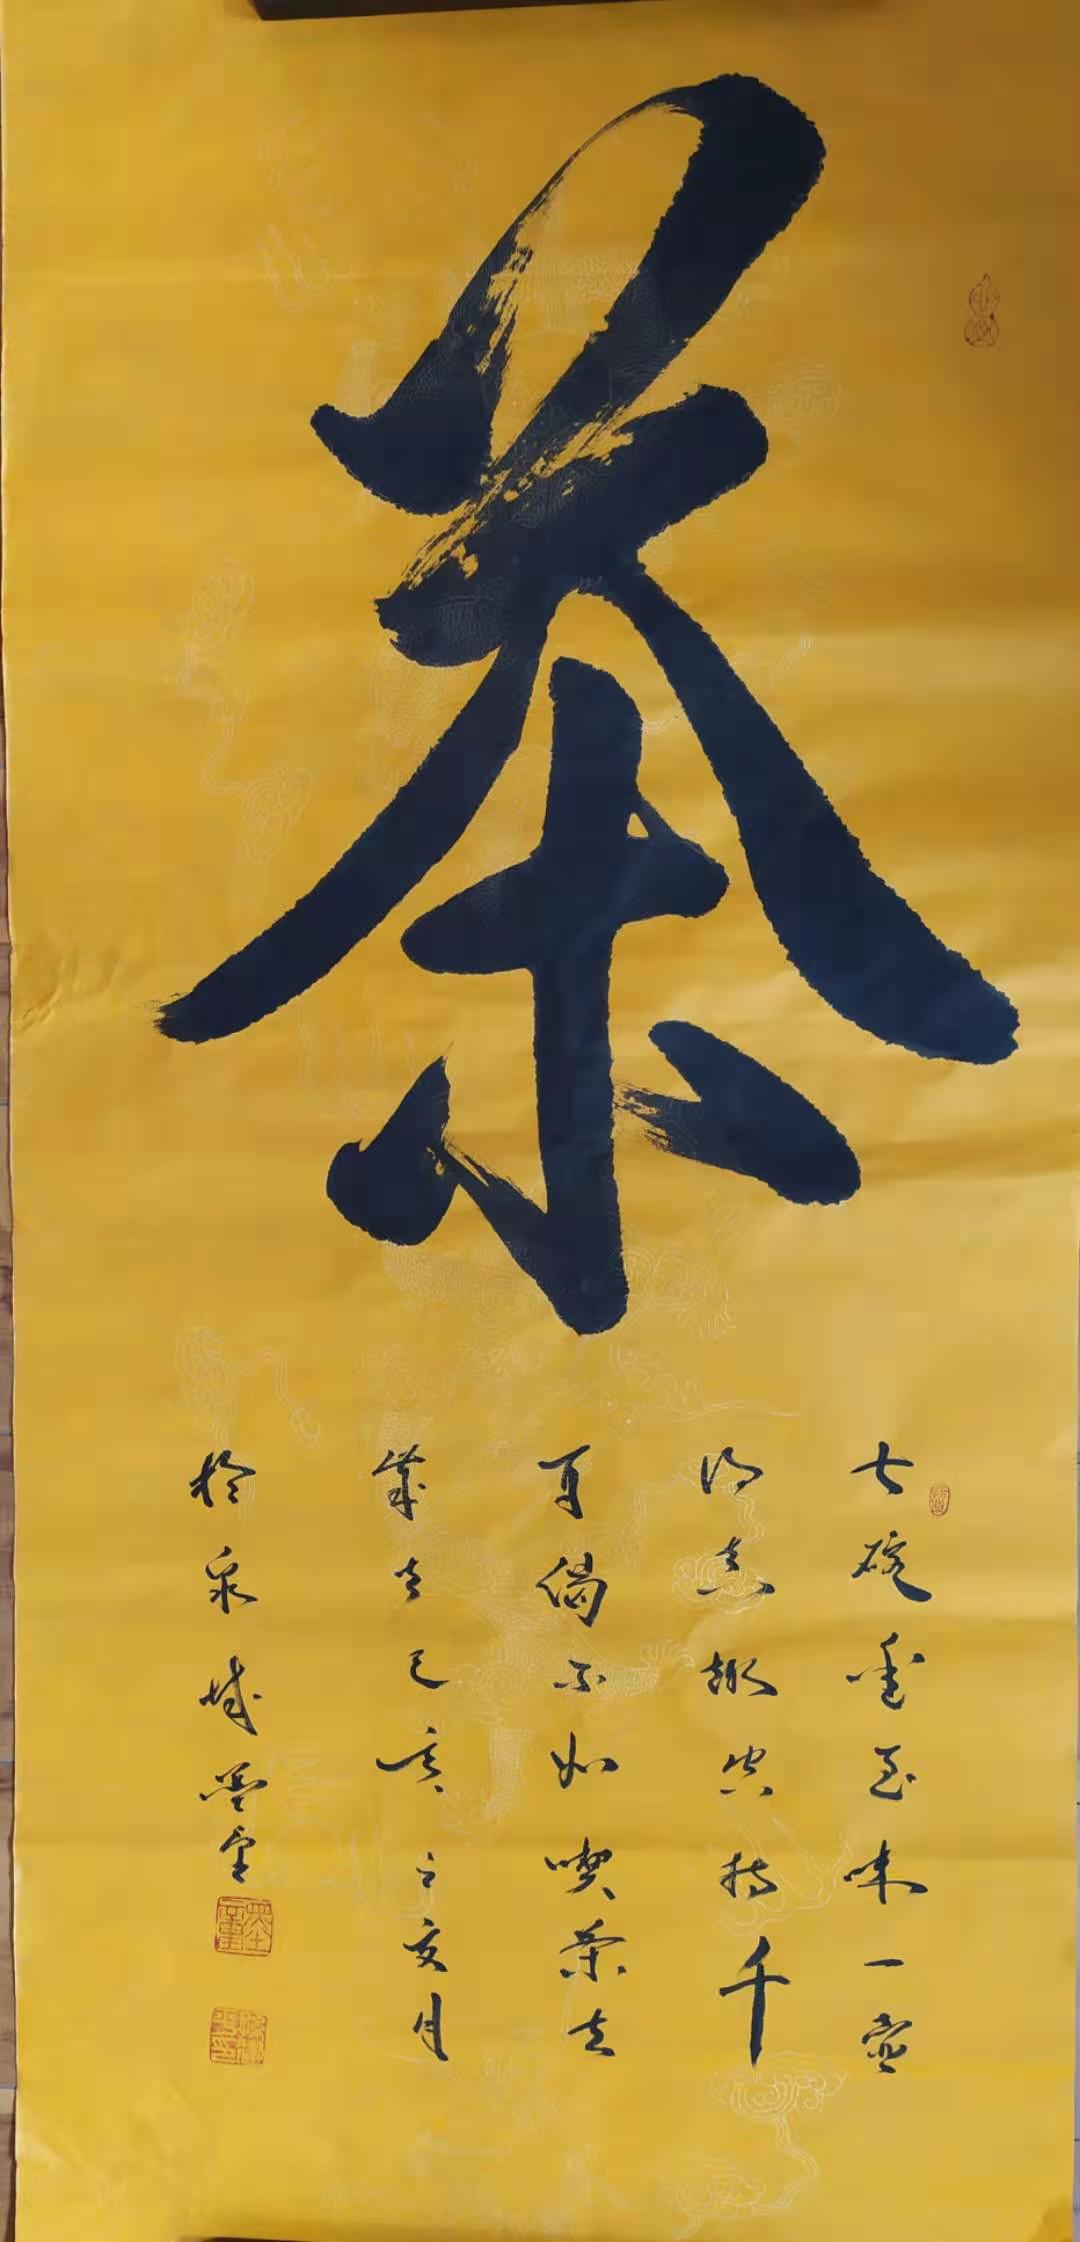 茶
七碗受至味一壺
得真趣空持千
百偈不如喫茶去
歲在己亥之亥月
於泉城墨堂